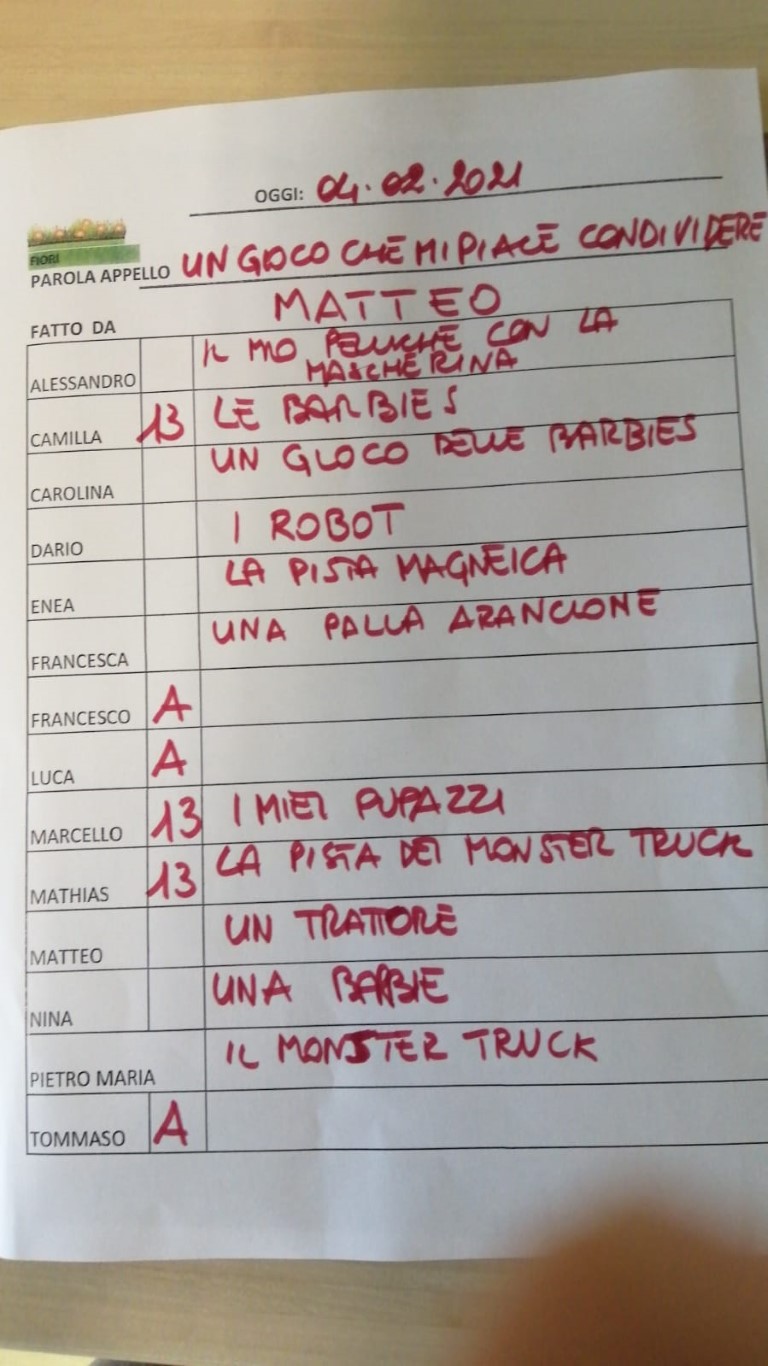 OGGI: 04.02.2021
FIORI
PAROLA APPELLO UN GIOCO CHE MI PIACE CONDIVIDERE
FATTO DA MATTEO
ALESSANDRO IL MIO PELUCHE CON LA
MASCHERINA
CAMILLA 13 LE BARBIES
CAROLINA UN GIOCO DELLE BARBIES
DARIO I ROBOT
ENEA LA PISTA MAGNEICA
FRANCESCA UNA PALLA ARANCIONE
FRANCESCO A
LUCA A
MARCELLO 13 I MIEI PUPAZZI
MATHIAS 13 LA PISTA DEI MONSTER TRUCK
MATTEO UN TRATTORE
NINA UNA BARBIE
PIETRO MARIA IL MONSTER TRUCK
TOMMASO A